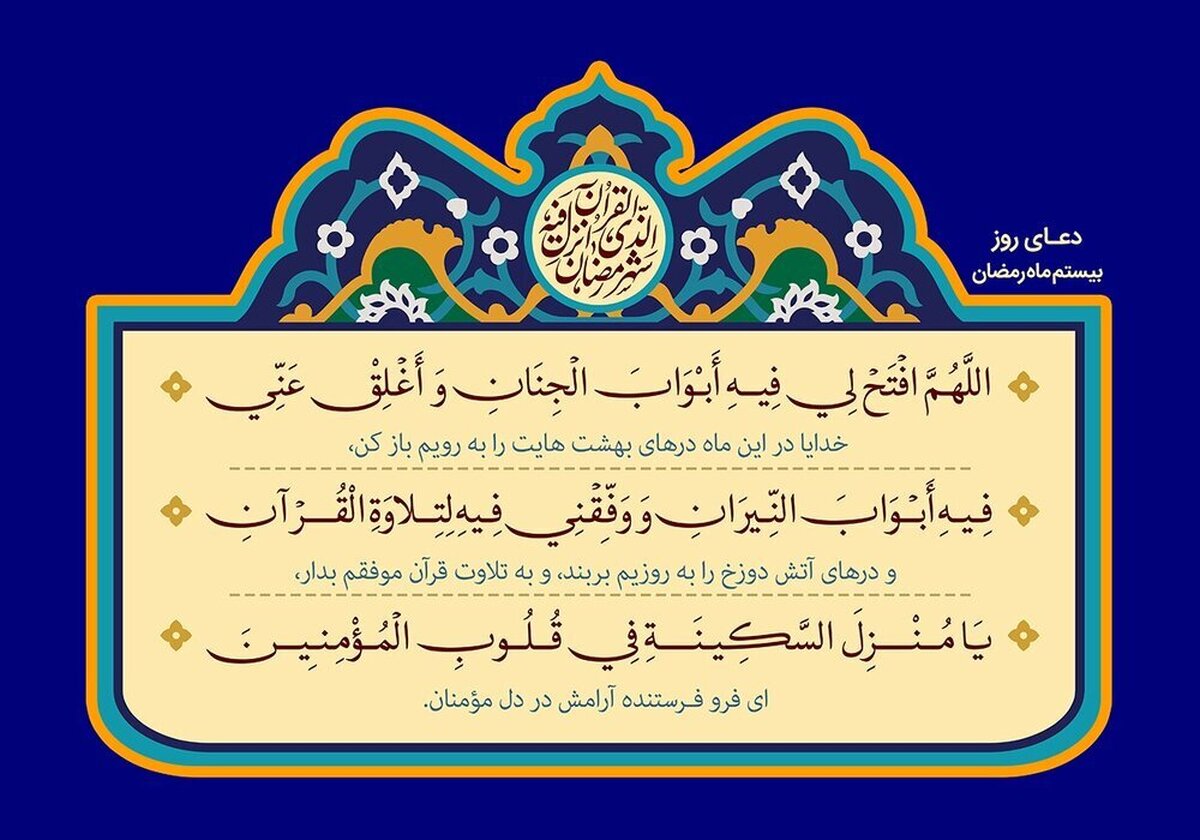 شَهْرُ رَمَضَانَ
الَّذِی أُنْزِلَ فِیهِ
الْقُرْآنُ
دعـای روز
بیستم ماه رمضان
اللَّهُمَّ افْتَحْ لِي فِيـهِ أَبْوَابَ الْجِنَانِ وَ أَغْلِقْ عَنِّي
خدایا در این ماه درهای بهشت هایت را به رویم باز کن،
فِيـهِ أَبْـوَابَ النِّيرَانِ وَ وَفِّقْنِي فِيهِ لِتِـلاوَةِ الْقُـرْآنِ
و درهای آتش دوزخ را به روزیم بربند، و به تلاوت قرآن موفقم بدار،
يَا مُـنْـزِلَ السَّـكِـينَـةِ فِي قُـلُـوبِ الْمُـؤْمِنِيـنَ
ای فرو فـرستنده آرامش در دل مؤمنان.